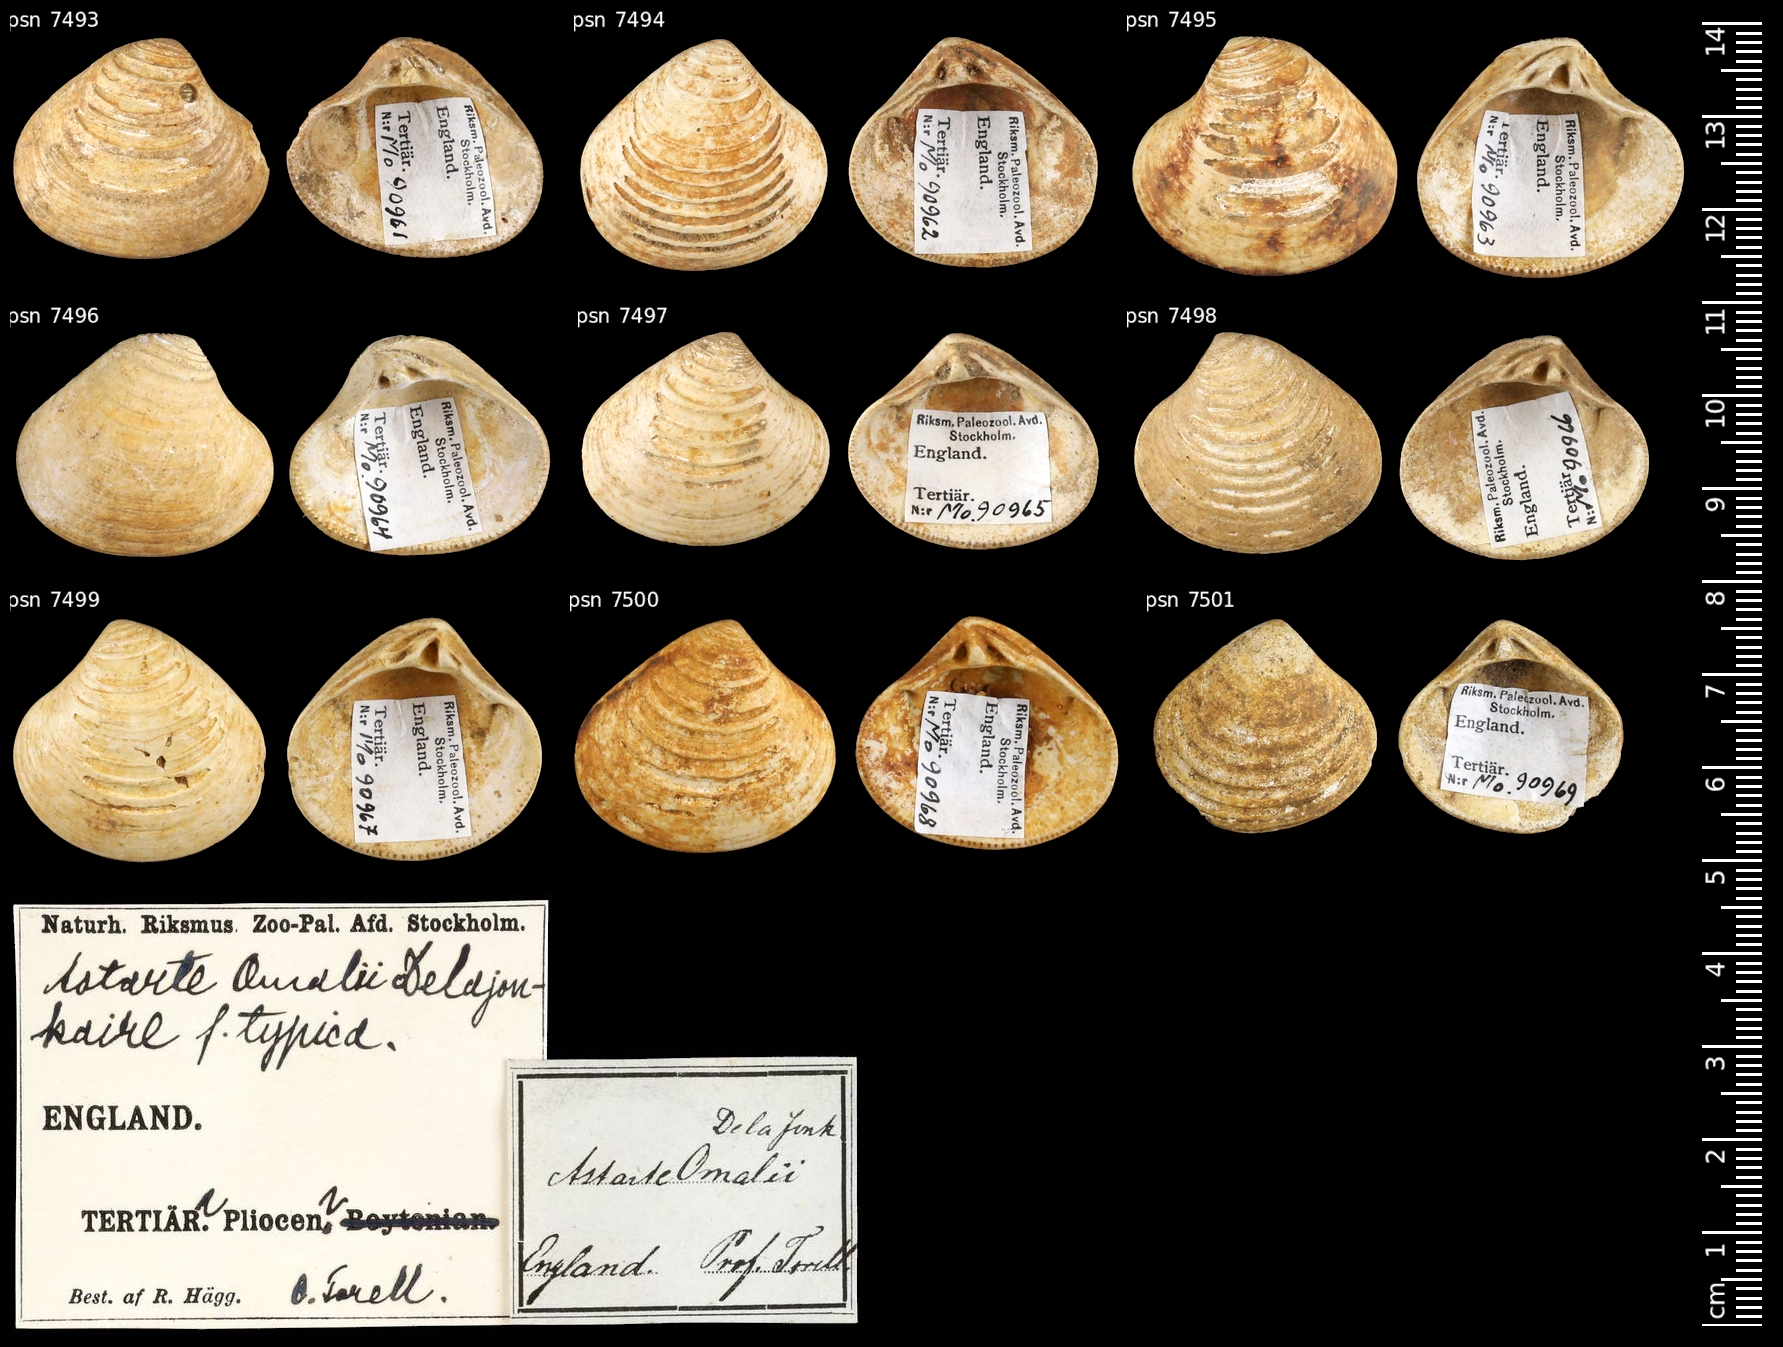 psn 7493
Riksm. Paleozool. Avd.
Stockholm.
England.
Tertiär.
N:r Mo 90961
psn 7494
Riksm. Paleozool. Avd.
Stockholm.
England.
Tertiär.
N:r Mo 90962
psn 7495
Riksm. Paleozool. Avd.
Stockholm.
England.
Tertiär.
N:r Mo 90963
psn 7496
Riksm. Paleozool. Avd.
Stockholm.
England.
Tertiär.
N:r Mo. 90964
psn 7497
Riksm. Paleozool. Avd.
Stockholm.
England.
Tertiär.
N:r Mo. 90965
psn 7498
Riksm. Paleozool. Avd.
Stockholm.
England.
Tertiär.
N:r Mo. 90966
psn 7499
Riksm. Paleozool. Avd.
Stockholm.
England.
Tertiär.
N:r Mo 90967
psn 7500
Riksm. Paleozool. Avd.
Stockholm.
England.
Tertiär.
N:r Mo 90968
psn 7501
Riksm. Paleozool. Avd.
Stockholm.
England.
Tertiär.
N:r Mo. 90969
Naturh. Riksmus. Zoo-Pal. Afd. Stockholm.
Astarte Omalii Delajon-
kaire f. typica.
ENGLAND.
TERTIÄR. Pliocen, Boytonian.
Best. af R. Hägg. O. Torell.
Dela Jonk
Astarte Omalii
England. Prof. Torell.
14
13
12
11
10
9
8
7
6
5
4
3
2
1
cm